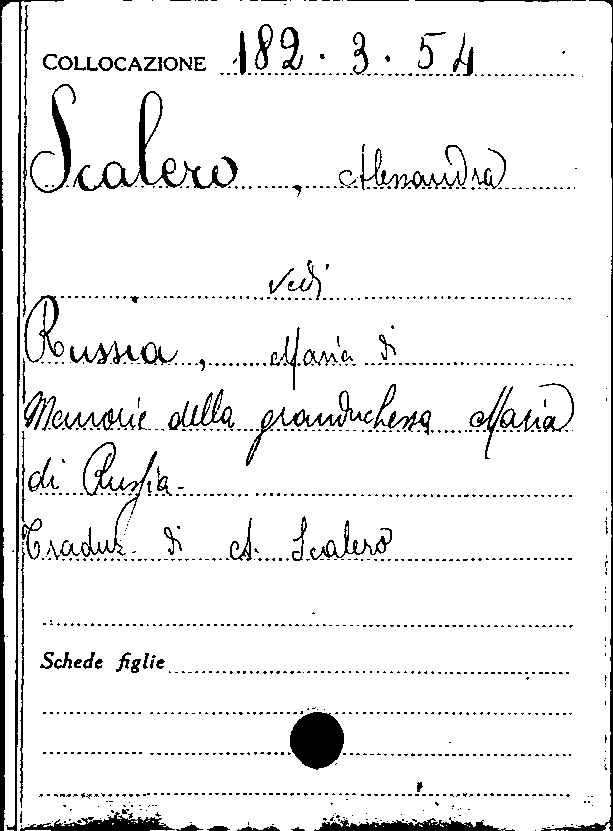 COLLOCAZIONE 182.3.54
Scalero, Alessandra
vedi
Russia, Maria di
Memorie della granduchessa Maria
di Russia.
Traduz. di A. Scalero
Schede figlie